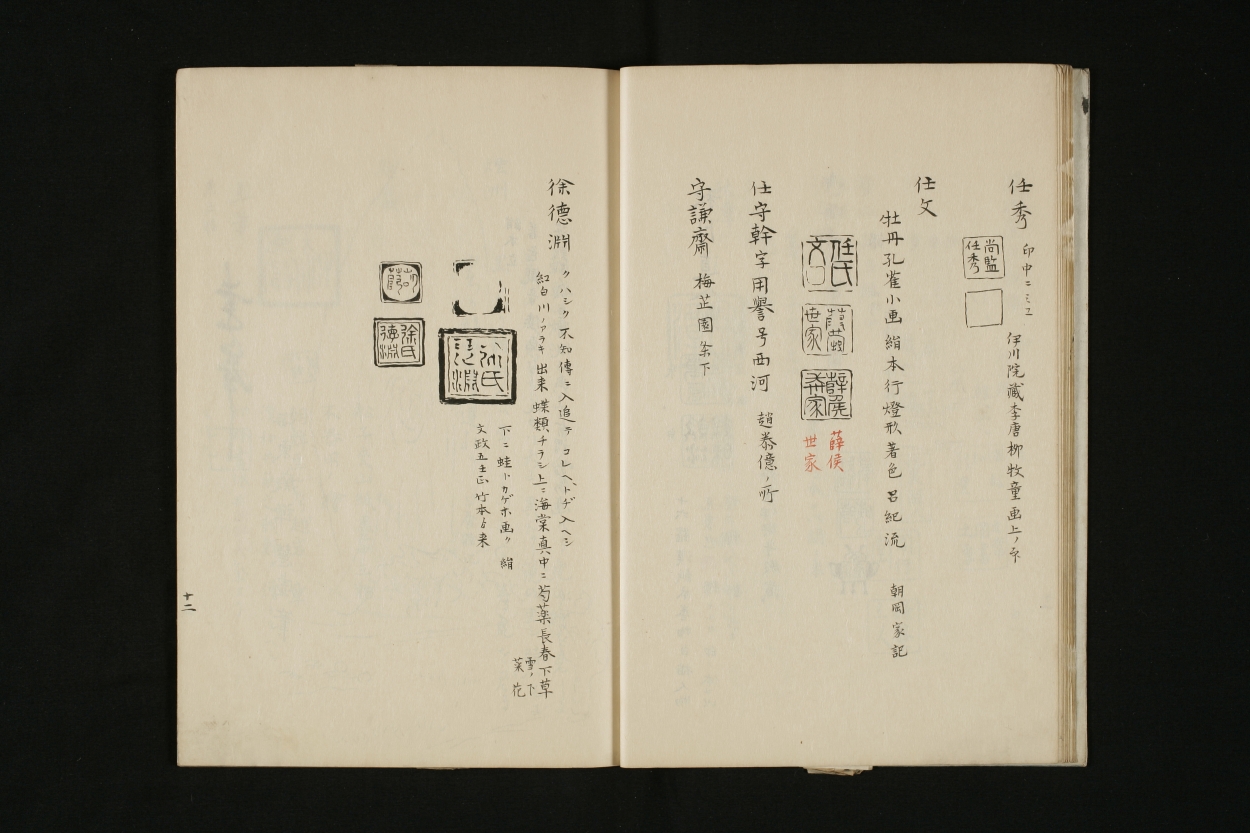 任秀 印中ニミユ
尚監任秀
伊川院藏李唐柳牧童画上ノ
任文
牡丹孔雀小画絹本行燈形著色呂紀流 朝岡家記
任氏
世家
薛侯
世家
任守幹字用譽号西河 趙泰億ノ所
守謙齋 梅芷園条下
徐德淵
クハシク不知傳ニ入追テコレヘトヂ入ヘシ
紅白川ノアラキ出来蝶類チラシ上ニ海棠真中ニ芍薬長春下草
雪ノ下
菜花
下ニ蛙トカゲホ画ク 絹
文政五壬正竹本ゟ来
徐氏
德淵
十二